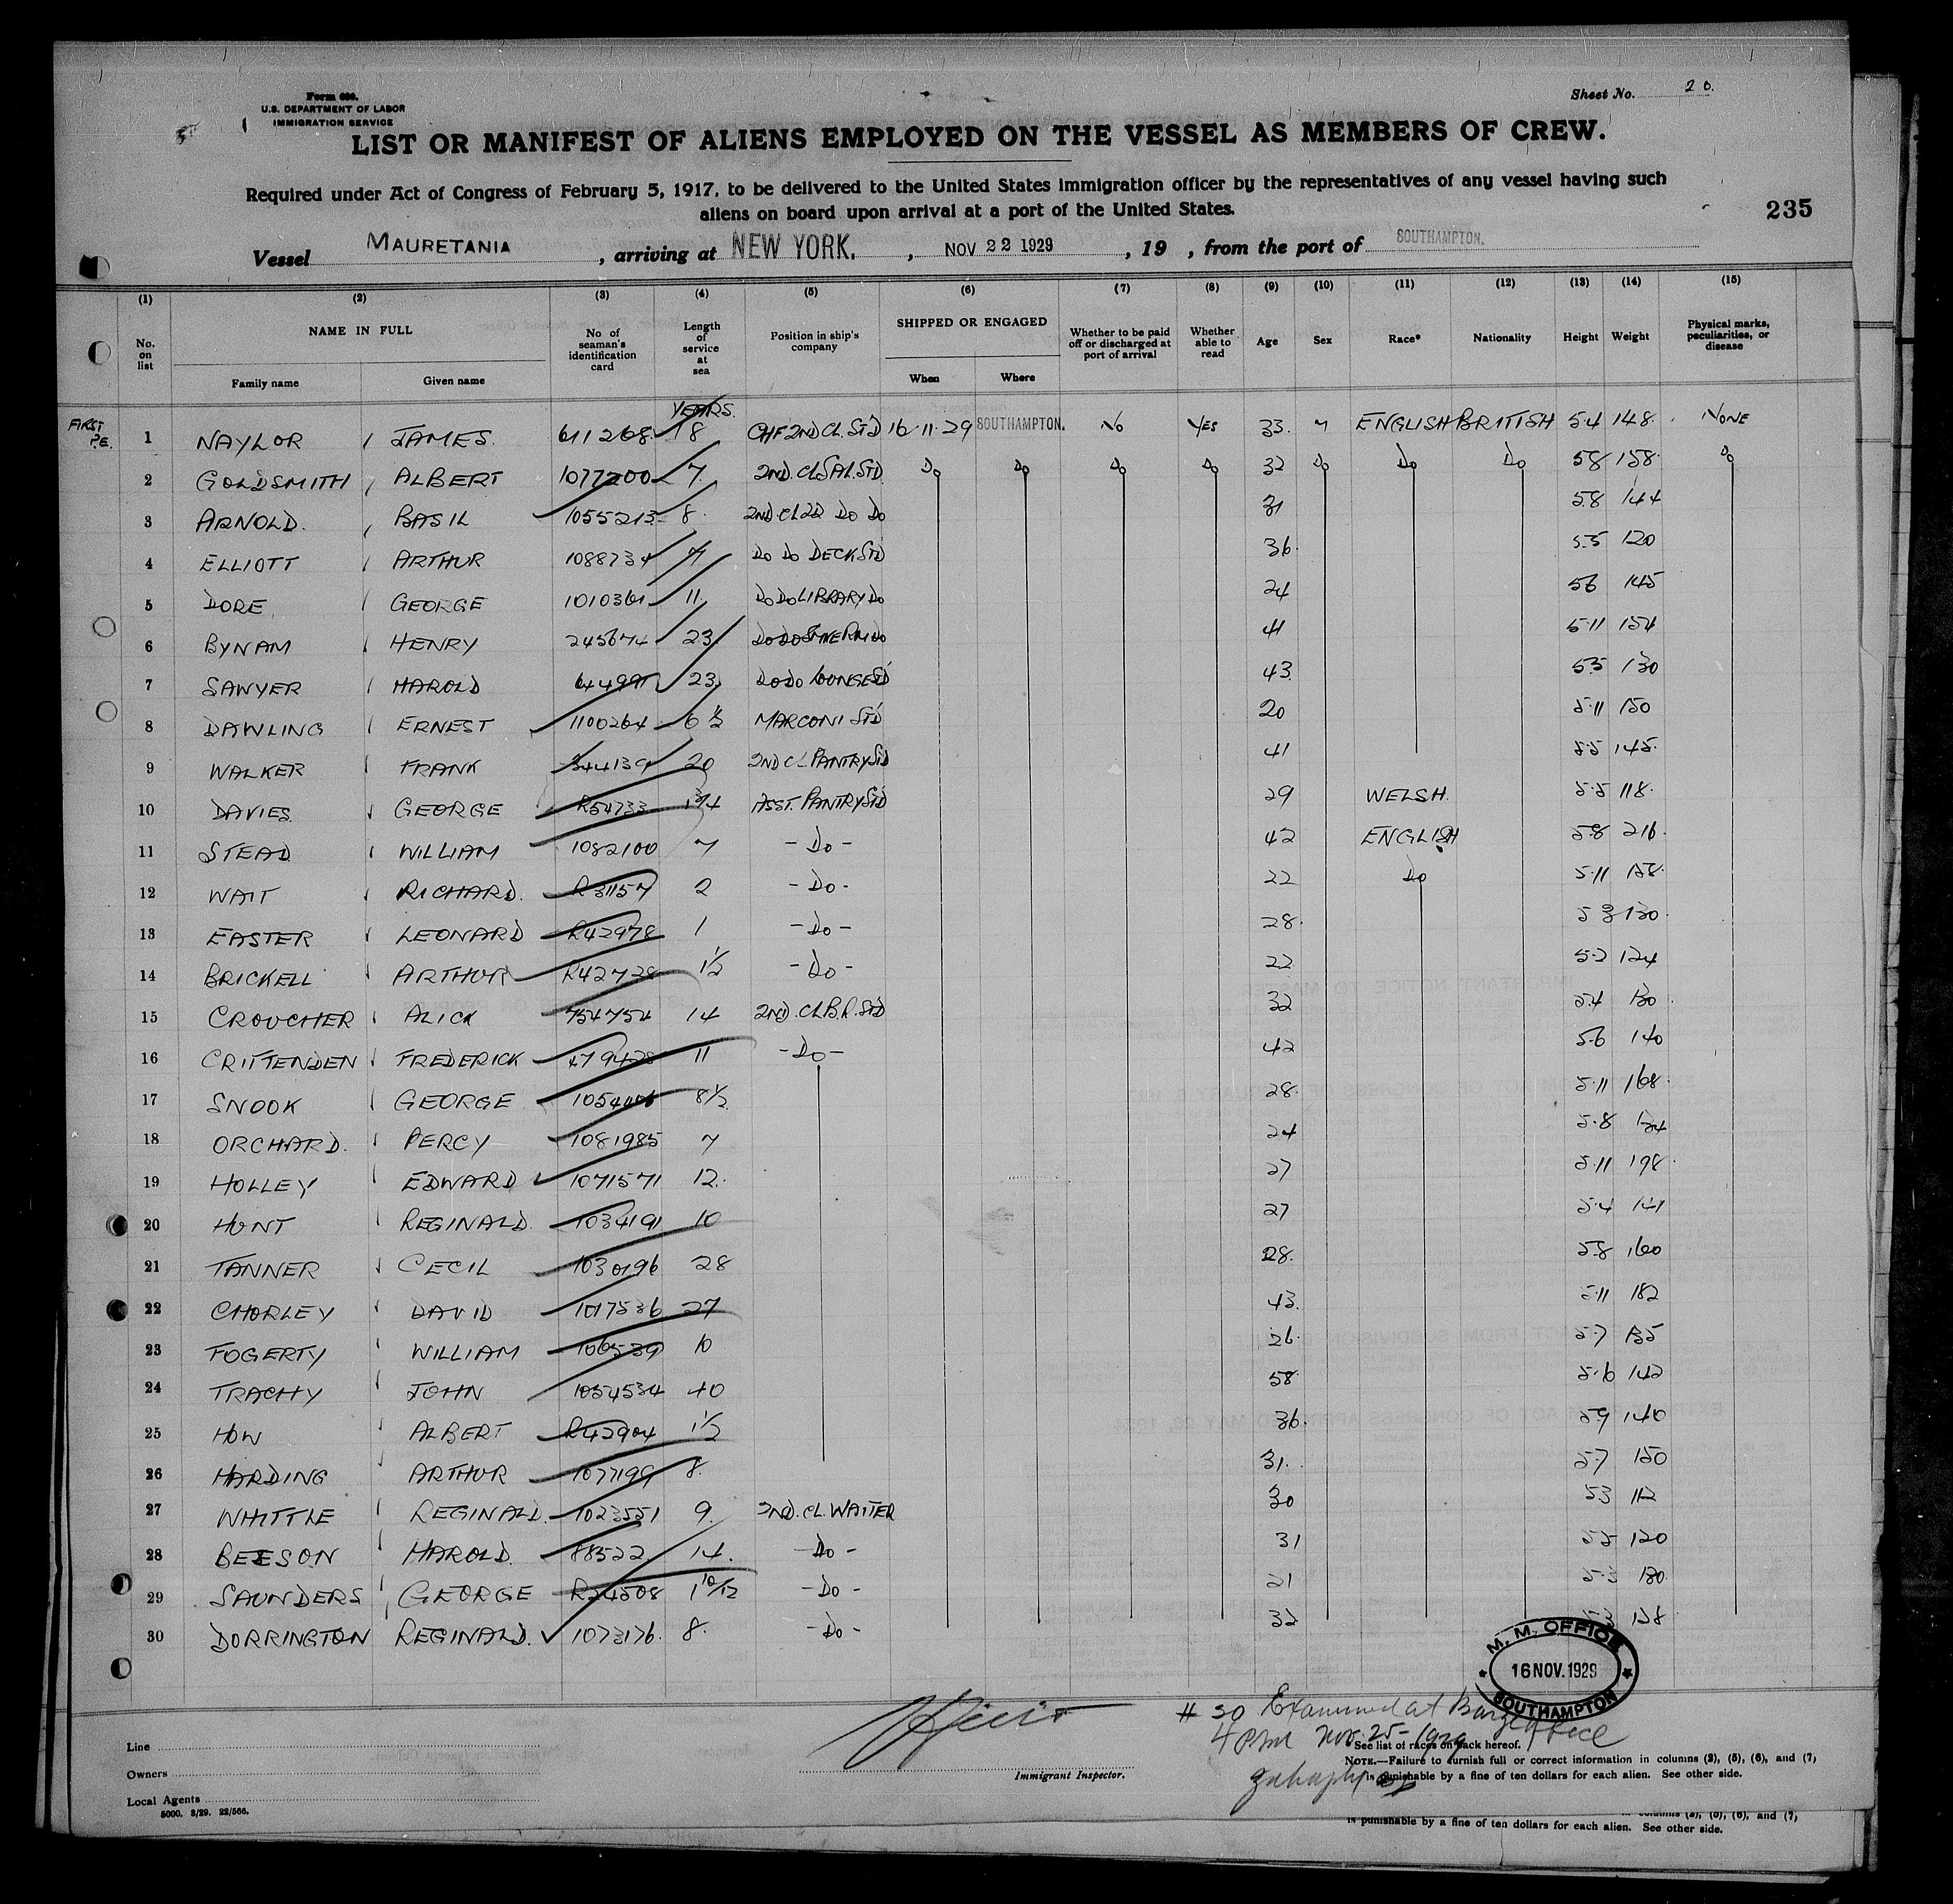 Form 680.
U.S. DEPARTMENT OF LABOR
IMMIGRATION SERVICE
Sheet No. 20.
LIST OR MANIFEST OF ALIENS EMPLOYED ON THE VESSEL AS MEMBERS OF CREW.
Required under Act of Congress of February 5, 1917, to be delivered to the United States immigration officer by the representatives of any vessel having such
aliens on board upon arrival at a port of the United States.
235
Vessel MAURETANIA, arriving at NEW YORK., NOV 22 1929, 19 , from the port of SOUTHAMPTON.
(1) (2) (3) (4) (5) (6) (7) (8) (9) (10) (11) (12) (13) (14) (15)
No. on list NAME IN FULL Family name Given name No. of seaman's identification card Length of service at sea Position in ship's company SHIPPED OR ENGAGED When Where Whether to be paid off or discharged at port of arrival Whether able to read Age Sex Race* Nationality Height Weight Physical marks, peculiarities, or disease
YEARS.
FIRST P.E. 1 NAYLOR JAMES. 611268 18 CHF 2ND CL. STD 16·11·29 SOUTHAMPTON. No YES 33. M ENGLISH BRITISH 5·4 148. NONE
2 GOLDSMITH ALBERT 1077200 7. 2ND. CL SAL. STD Do Do Do Do 32 Do Do Do 5·8 158. Do
3 ARNOLD. BASIL 1055213 8. 2ND CL Do Do 31 5·8 144
4 ELLIOTT ARTHUR 1088734 7 Do Do DECK STD 36. 5·5 120
5 DORE GEORGE 1010361 11. Do Do LIBRARY Do 24 5·6 145
6 BYNAM HENRY 245674 23 Do Do Do 41 5·11 154
7 SAWYER HAROLD 23 Do Do LOUNGE STD 43. 5·5 130
8 DAWLING ERNEST 1100264 6½ MARCONI STD 20 5·11 150
9 WALKER FRANK 344139 20 2ND CL PANTRY STD 41 5·5 145.
10 DAVIES. GEORGE R54733 ASST. PANTRY STD 29 WELSH. 5·5 118.
11 STEAD WILLIAM 1082100 7 - Do - 42 ENGLISH 5·8 216.
12 WAIT RICHARD. R31157 2 - Do - 22 Do 5·11 158.
13 EASTER LEONARD R42978 1 - Do - 28. 5 3 130.
14 BRICKELL ARTHUR R42728 1½ - Do - 22 5·2 124
15 CROUCHER ALICK 754754 14 2ND. CL B.R. STD 32 5·4 130
16 CRITTENDEN FREDERICK 479428 11 - Do - 42 5·6 140
17 SNOOK GEORGE 8½ 28. 5·11 168.
18 ORCHARD. PERCY 1081985 7 24 5·8
19 HOLLEY EDWARD 1071571 12. 27 5·11 198.
20 HUNT REGINALD 1034191 10 27 5·4 141
21 TANNER CECIL 1030196 28 28. 5·8 160
22 CHORLEY DAVID 1017536 27 43. 5·11 182
23 FOGERTY WILLIAM 10 26. 5·7 135
24 TRACHY JOHN 1054534 40 58 5·6 142
25 HOW ALBERT R42904 1½ 36. 5·9 140
26 HARDING ARTHUR 1077199 8. 31. 5·7 150
27 WHITTLE REGINALD. 1023551 9. 2ND. CL. WAITER 30 5·3 112
28 BEESON HAROLD. 88522 14. - Do - 31 5·5 120
29 SAUNDERS GEORGE R24508 1 10/12 - Do - 21 5·3 130.
30 DORRINGTON REGINALD. 1073176. 8. - Do - 32 128
M. M. OFFICE
16 NOV. 1929
SOUTHAMPTON
# 30 Examined at Barge Office
4 PM Nov. 25 - 1929
Line
Owners
Local Agents
5000. 8/29. 22/566.
Immigrant Inspector.
See list of races on back hereof.
NOTE.—Failure to furnish full or correct information in columns (2), (5), (6), and (7,
is punishable by a fine of ten dollars for each alien. See other side.
columns (2), (5), (6), and (7,
is punishable by a fine of ten dollars for each alien. See other side.